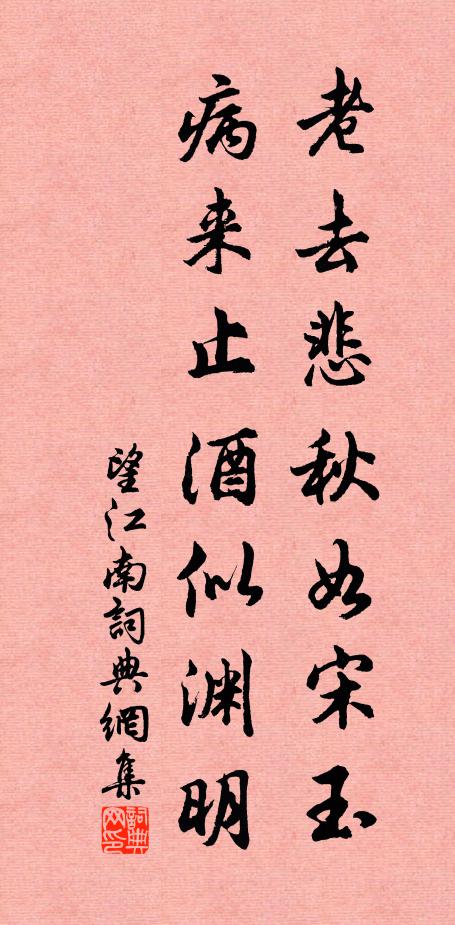 老去悲秋如宋玉
病来止酒似渊明
望江南詞典網集
詞典网印